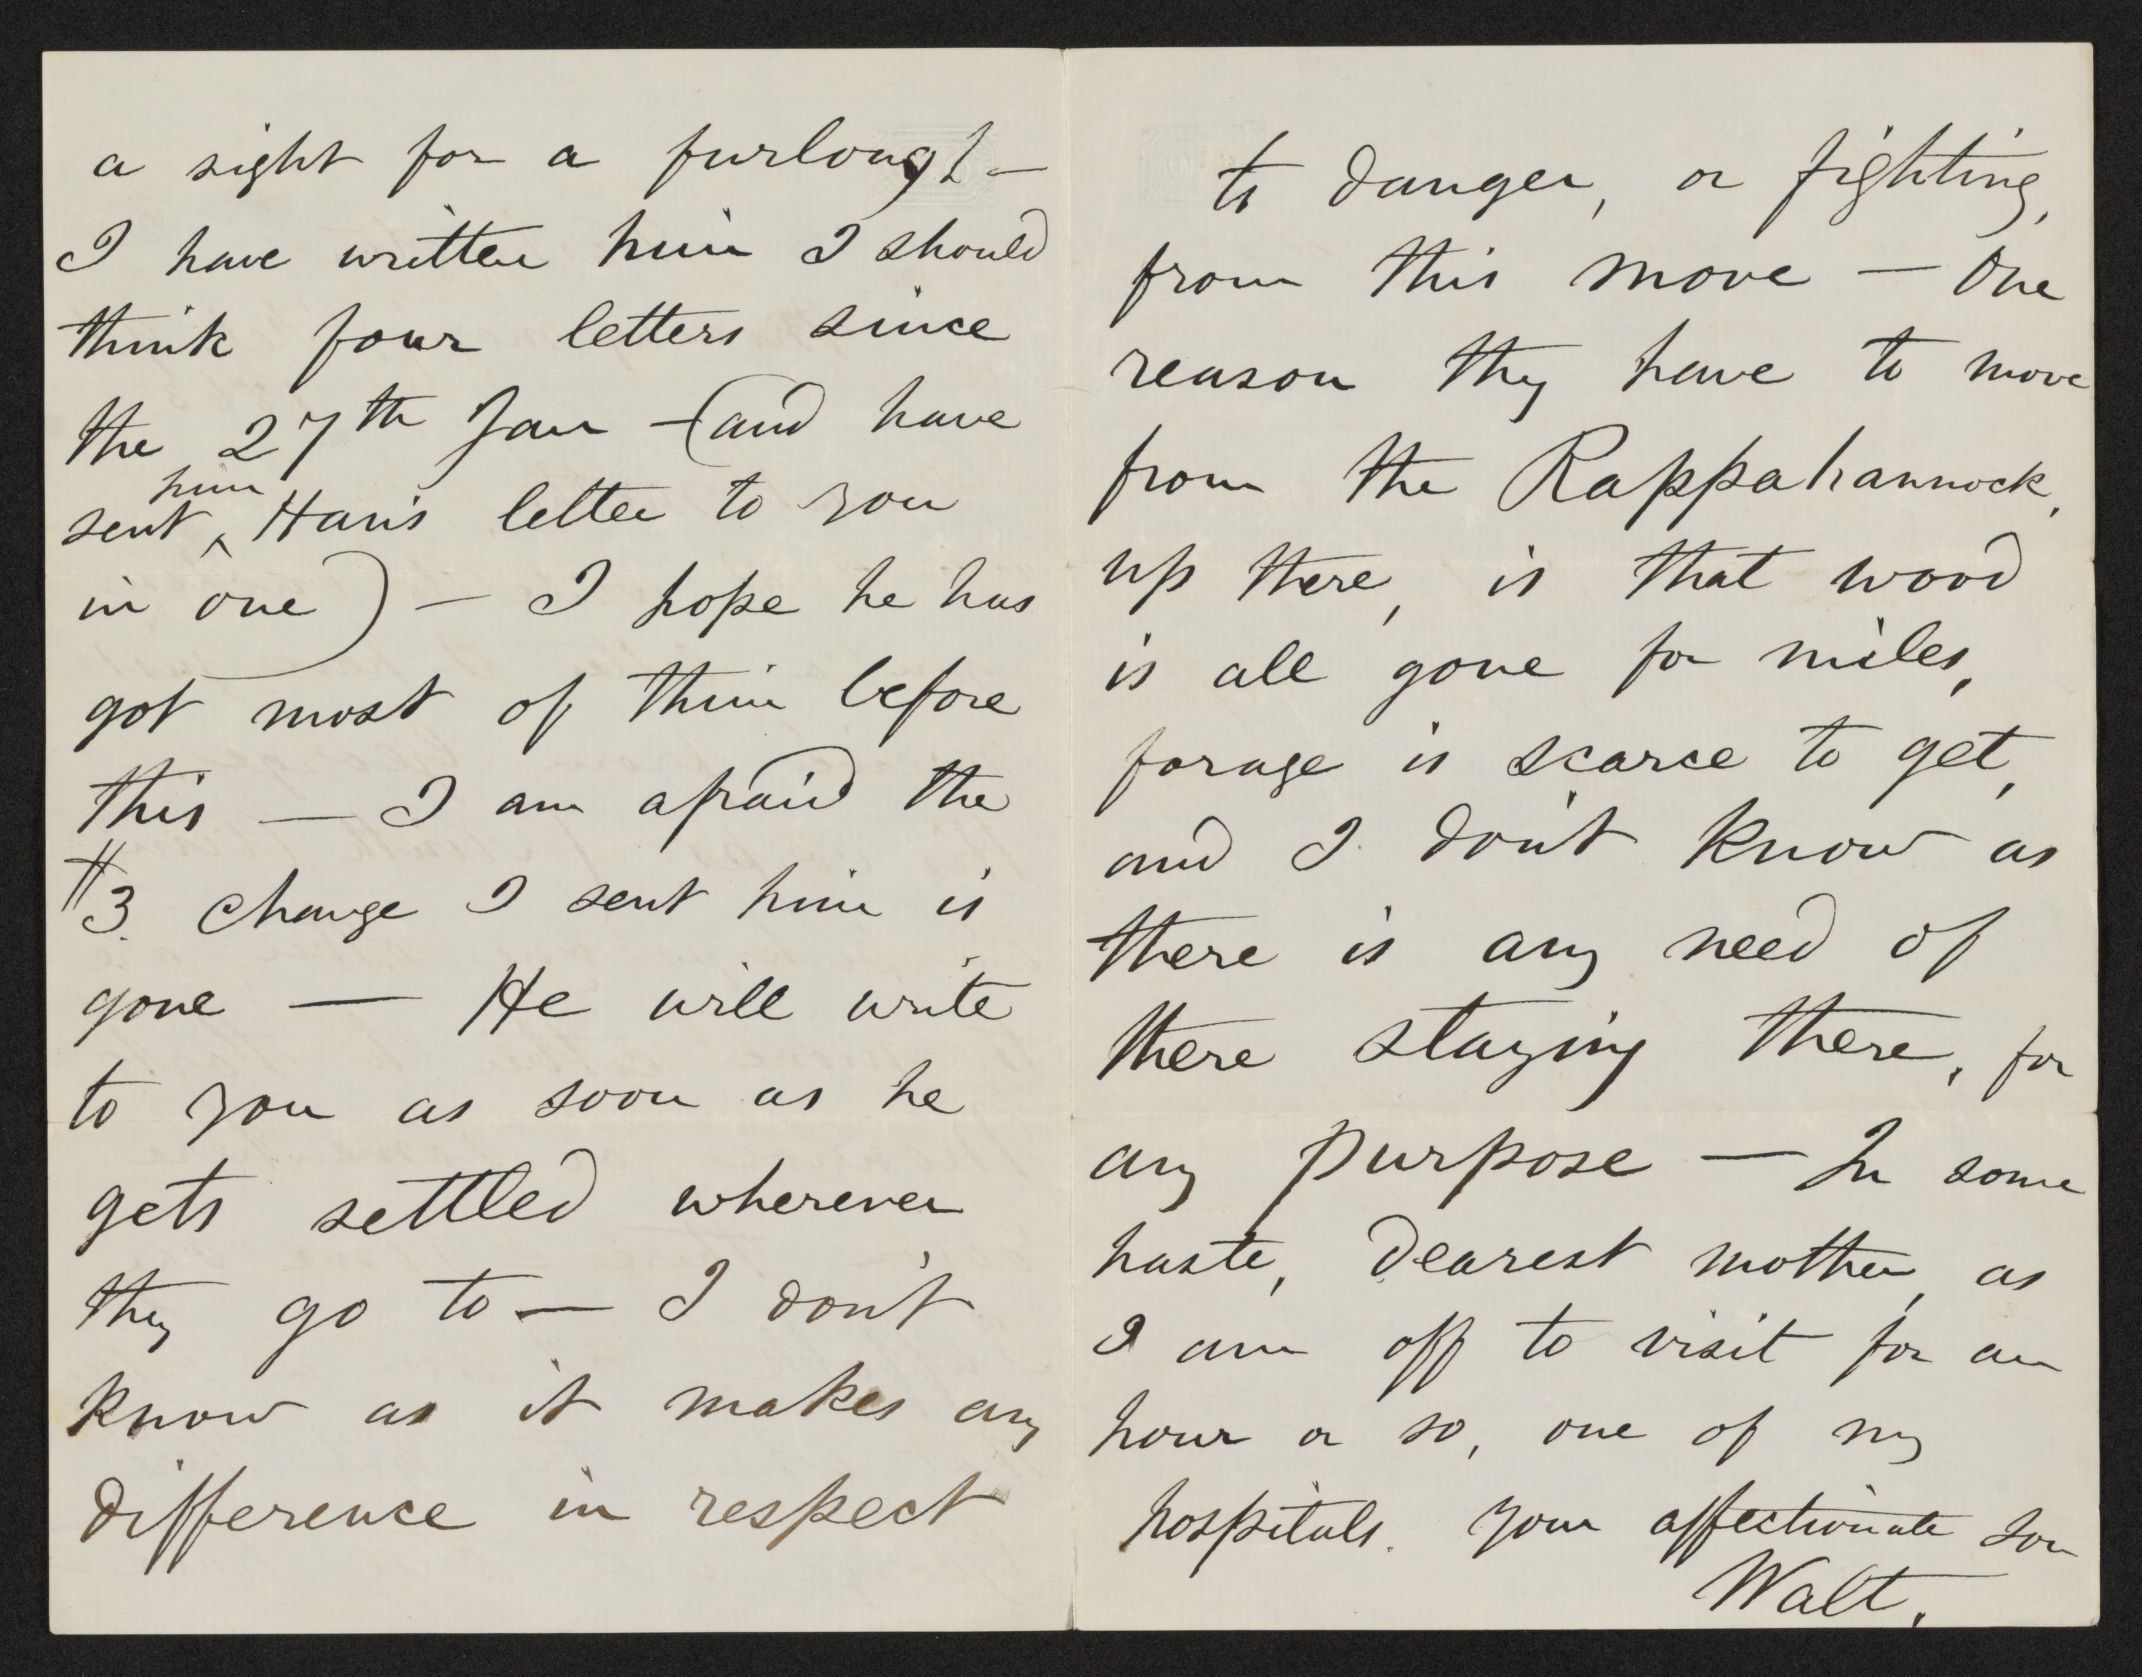 a sight for a furlough —
I have written him I should
think four letters since
the 27th Jan — (and have
sent ^him Han's letter to you
in one) — I hope he has
got most of them before
this — I am afraid the
$3. change I sent him is
gone — He will write
to you as soon as he
gets settled wherever
they go to — I don't
know as it makes any
difference in respect
to danger, or fighting,
from this move — One
reason they have to move
from the Rappahannock,
up there, is that wood
is all gone for miles,
forage is scarce to get,
and I don't know as
there is any need of
there staying there, for
any purpose — In some
haste, dearest mother, as
I am off to visit for an
hour or so, one of my
hospitals. Your affectionate son
Walt.